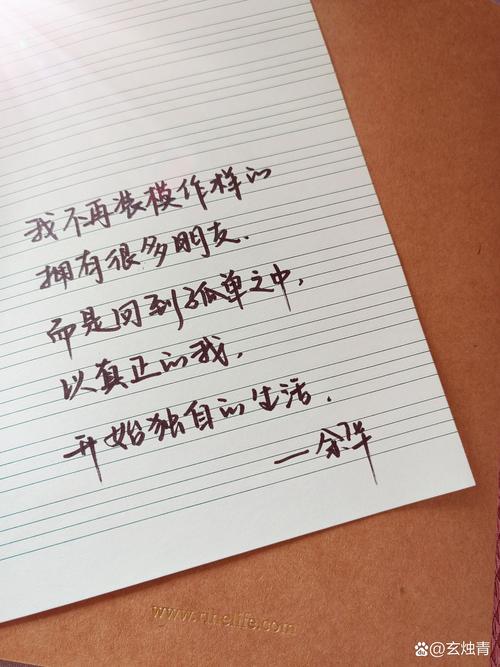 我不再装模作样的
拥有很多朋友.
而是回到孤单之中,
以真正的我,
开始独自的生活.
一余华
www.rhelife.com
@玄烛青